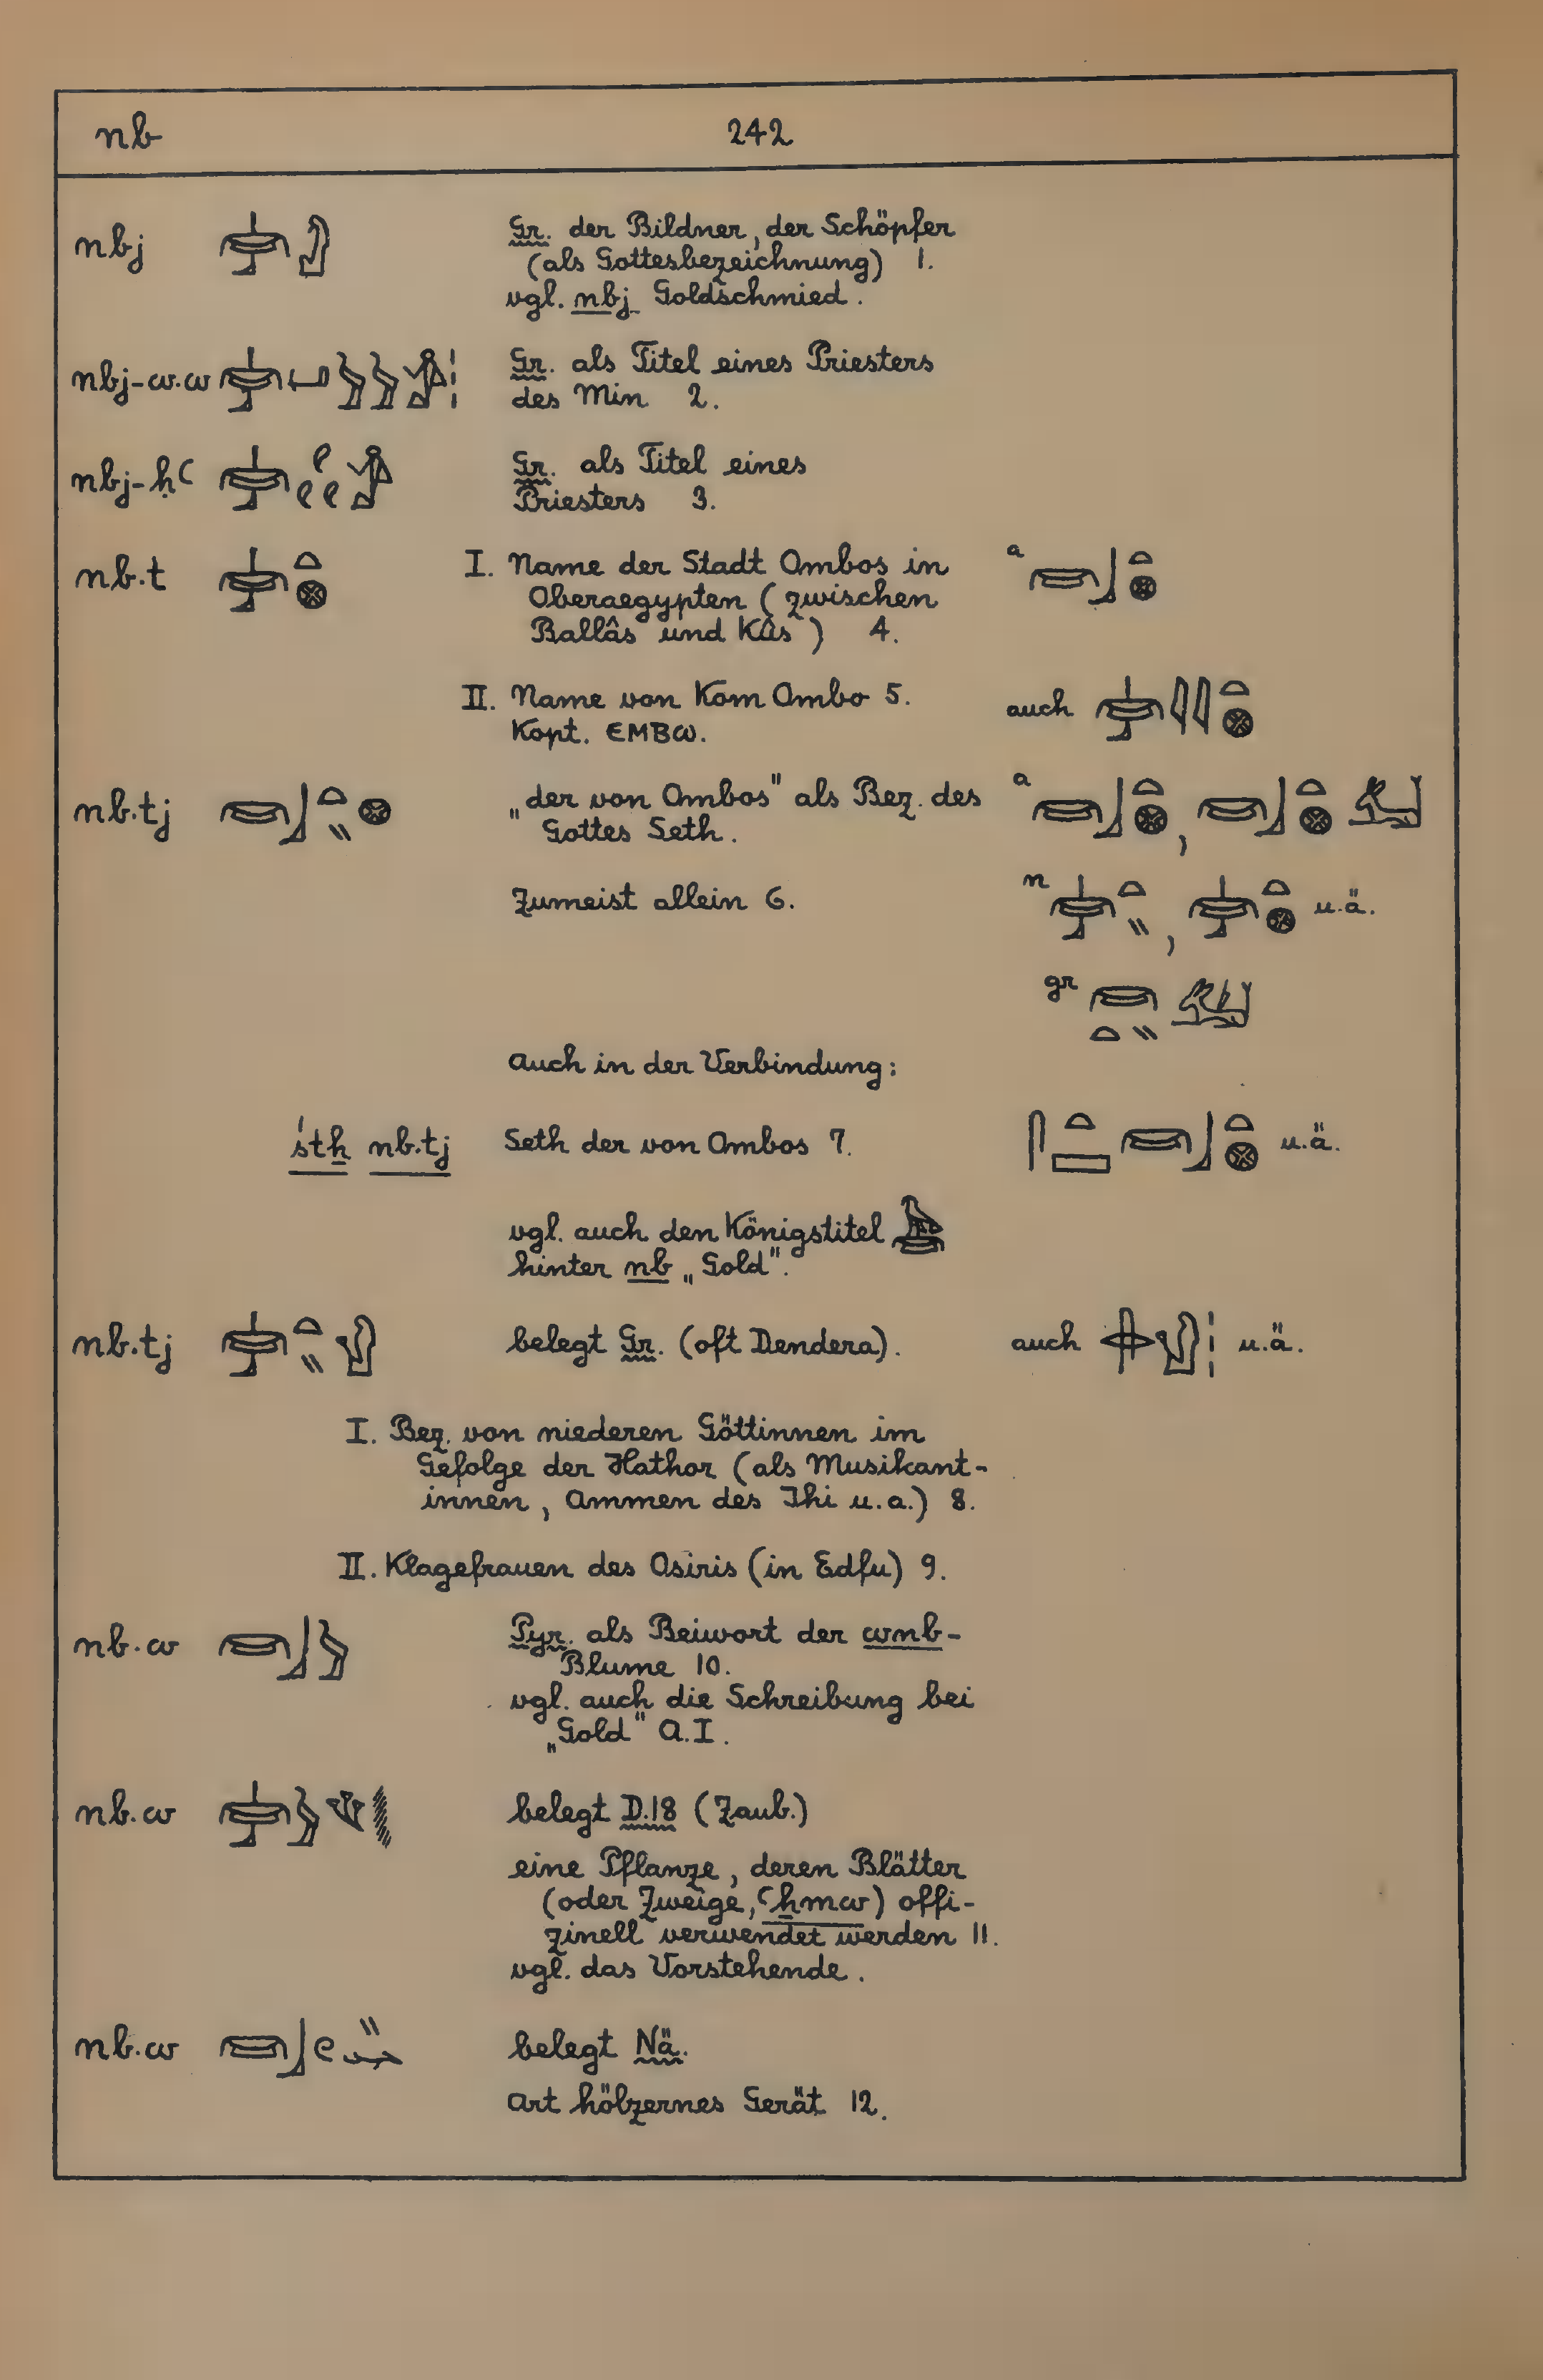 nb 242
nbj Gr. der Bildner, der Schöpfer
(als Gottesbezeichnung) 1.
vgl. nbj Goldschmied.
nbj-w.w Gr. als Titel eines Priesters
des Min 2.
nbj-ḥꜥ Gr. als Titel eines
Priesters 3.
nb.t I. Name der Stadt Ombos in a
Oberaegypten (zwischen
Ballâs und Kûs) 4.
II. Name von Kom Ombo 5. auch
Kopt. ⲈⲘⲂⲰ.
nb.tj „der von Ombos" als Bez. des a ,
Gottes Seth.
Zumeist allein 6. n , u.ä.
gr
Auch in der Verbindung:
śtẖ nb.tj Seth der von Ombos 7. u.ä.
vgl. auch den Königstitel
hinter nb „Gold".
nb.tj belegt Gr. (oft Dendera). auch u.ä.
I. Bez. von niederen Göttinnen im
Gefolge der Hathor (als Musikant-
innen, Ammen des Ihi u.a.) 8.
II. Klagefrauen des Osiris (in Edfu) 9.
nb.w Pyr. als Beiwort der wnb-
Blume 10.
vgl. auch die Schreibung bei
„Gold" A.I.
nb.w belegt D.18 (Zaub.)
eine Pflanze, deren Blätter
(oder Zweige, ꜥẖmw) offi-
zinell verwendet werden 11.
vgl. das Vorstehende.
nb.w belegt Nä.
Art hölzernes Gerät 12.